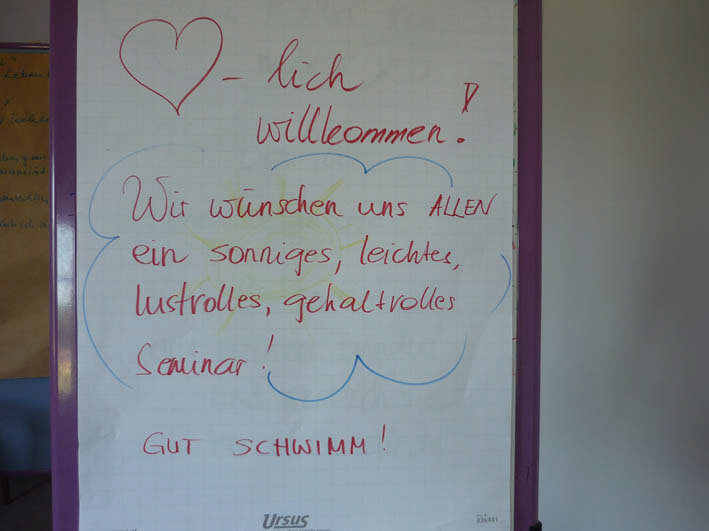 ♡ - lich
willkommen!
Wir wünschen uns ALLEN
ein sonniges, leichtes,
lustvolles, gehaltvolles
Seminar!
GUT SCHWIMM!
Ursus